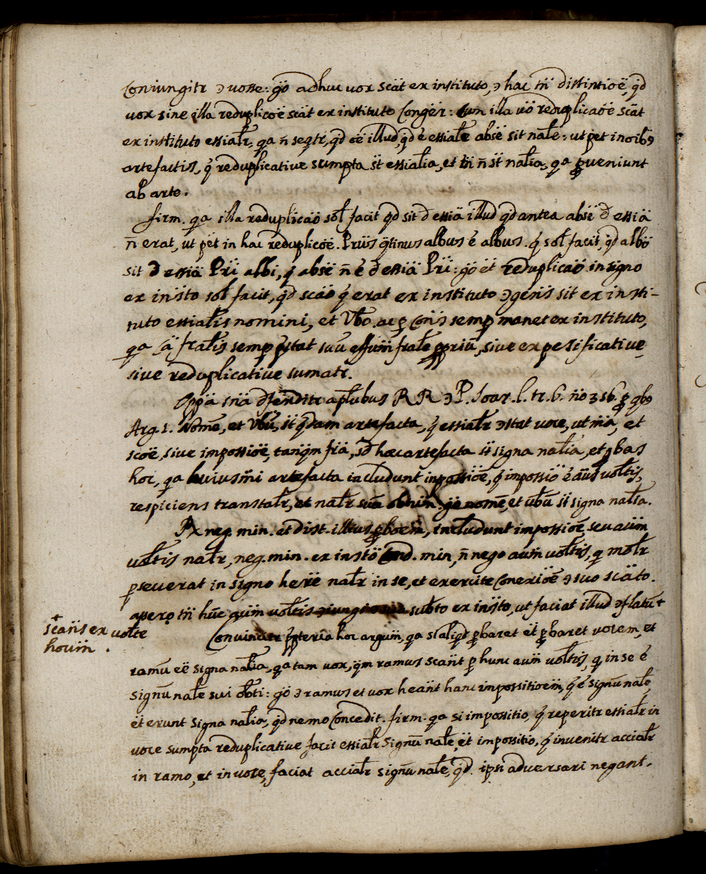 Coniungitr ɔ voσse: gõ adhuc vox scāt ex instituto, ɔ hac tñ distintiõe, qd
vox sine illa reduplicõe scāt ex instituto Congẽr: cum illa võ reduplicaõe scāt
ex instituto essialr, qa ñ seqtr, qd eẽ illud, qd ẽ essialr absẽ sit nale: ut pet in oibꝯ
artefactis, q̃ reduplicative sumpta st̃ essialia, et tñ ñ st̃ nalia, qa ꝓveniunt
ab arte.
firm. qa illa reduplicaõ sol̃ facit qd sit d̃ essiã illud qd antea absẽ d̃ essiã
ñ erat, ut pet in hac reduplicõe. Prius albus ẽ albus. q̃ sol̃ facit, qd albõ
sit d̃ essiã Pri albi, q̃ absẽ ñ ẽ d̃ essiã Pri: gõ et reduplicaõ in signo
ex insto sol̃ facit, qd scaõ q̃ erat ex instituto ɔgeris sit ex insti-
tuto essialis nomini, et Vbo. ac ꝑ Cons̃ semp manet ex instituto,
qa Cã fralis semp p̃stat suũ effum̃ frale ꝓpriũ, sive ex pesificative,
sive reduplicative sumatr.
Opp̃a sñã dfenditr apl̃ubus RR ɔ P. Soar. l. tr. 6. nõ 356. ꝑ qbꝯ
Arg. 1. Nome, et Vbũ, st̃ qdam artefacta, q̃ essialr ɔstat voce, ut mã, et
scõe, sive impossiõe, tanqm frã, sd̃ haec artefacta st̃ signa nalia, et ꝓbas
hoc, qa huiusmi artefacta includunt impossiõe, q̃ impossiõ ẽ aũs voltis,
respiciens transtalr, et nalr suũ obium. gõ nome, et vbũ st̃ signa nalia.
Rx neg. min. et dist. illius ꝓboem, includunt impossiõe, seu aum
voltis nalr, neg. min. ex instõ Cond. min, ñ nego aum voltis, q molr
pseverat in signo here nalr in se, et exercite Conexiõe ɔ suo scāto.
assero tñ hũc aum voltis subto ex insto, ut faciat illud ɔflatũ +
+ scañs ex volte
houim.
Convincitr ppterea hoc argum, qa si aliqd ꝓbaret et ꝓbaret vocem, et
ramũ eẽ signa nalia, qa tam vox, qm ramus scañt ꝑ hunc aum voltis, q in se ẽ
signũ nale sui obti: gõ ɔ ramus et vox heañt hanc impositioem, q̃ ẽ signũ nale
et erunt signa nalia, qd nemo Concedit. firm. qa si impositio, q̃ reperitr essialr in
voce sumpta reduplicative facit essialr signũ nale, et impositio, q̃ invenitr accialr
in ramo, et in voce, faciat accialr signũ nale, qd ipsi adversari negant.